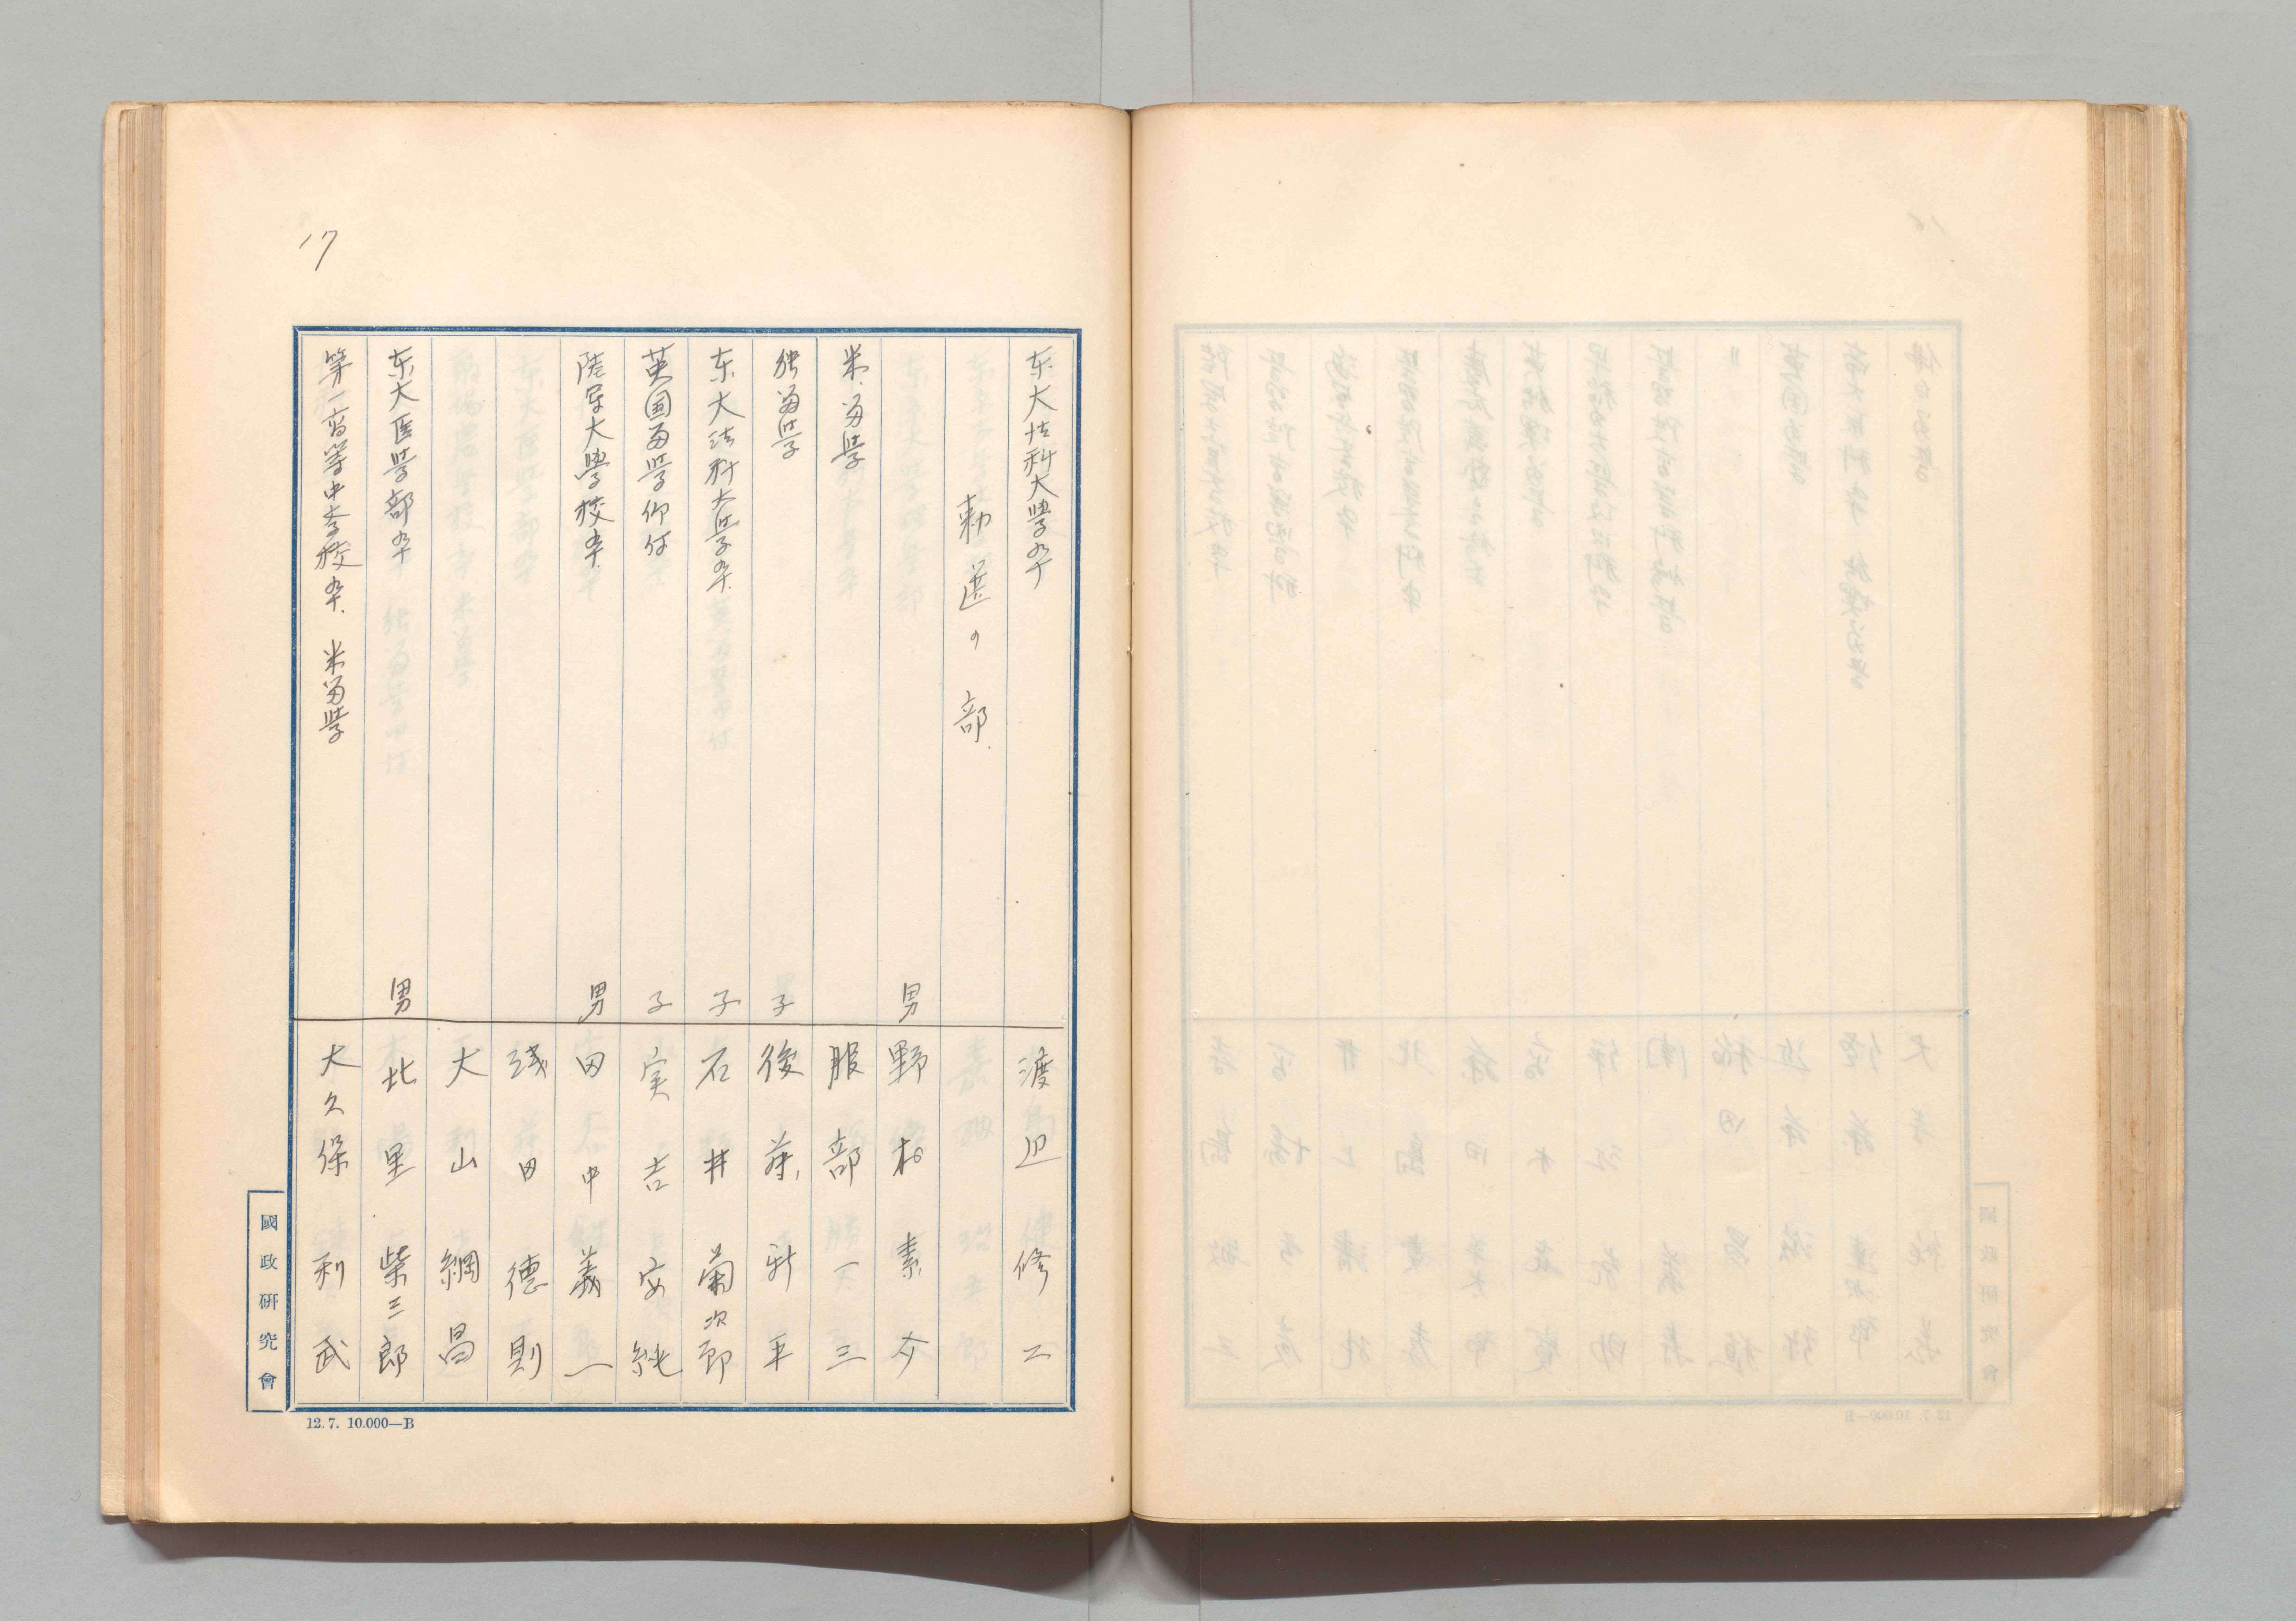 17
东大法科大學卒 渡辺修二
勅選の部
男 野村素介
米留学 服部一三
独留学 子 後藤新平
东大法科大学卒 子 石井菊次郎
英国留学仰付 子 実吉安純
陸軍大學校卒 男 田中義一
浅田徳則
大山綱昌
东大医学部卒 男 北里柴三郎
第一高等中学校卒 米留学 大久保利武
國政研究會
12.7. 10.000—B